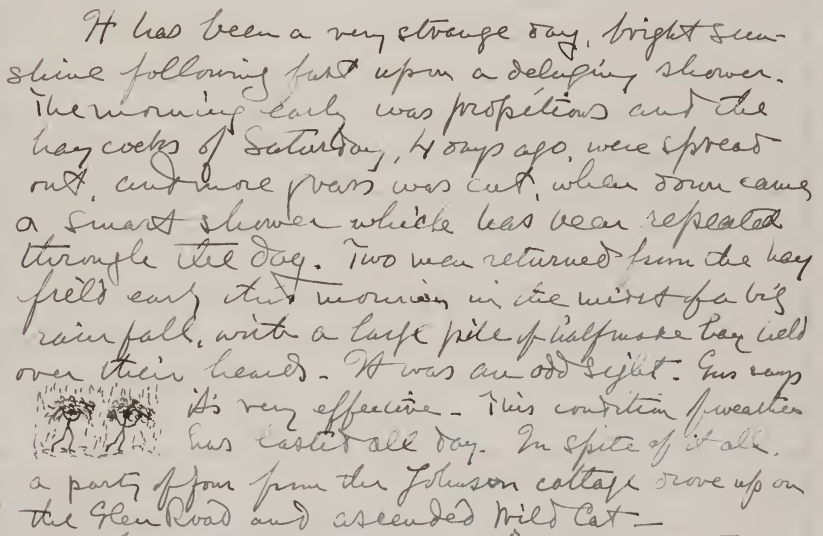 It has been a very strange day, bright sun-
shine following fast upon a deluging shower.
The morning early was propitious and the
haycocks of Saturday, 4 days ago, were spread
out, and more grass was cut, when down came
a smart shower which has been repeated
through the day. Two men returned from the hay
field early this morning in the midst of a big
rain fall, with a large pile of half made hay held
over their heads - It was an odd sight. Gus says
it's very effective - This condition of weather
has lasted all day. In spite of it all,
a party of four from the Johnson cottage drove up on
the Glen Road and ascended Wild Cat -